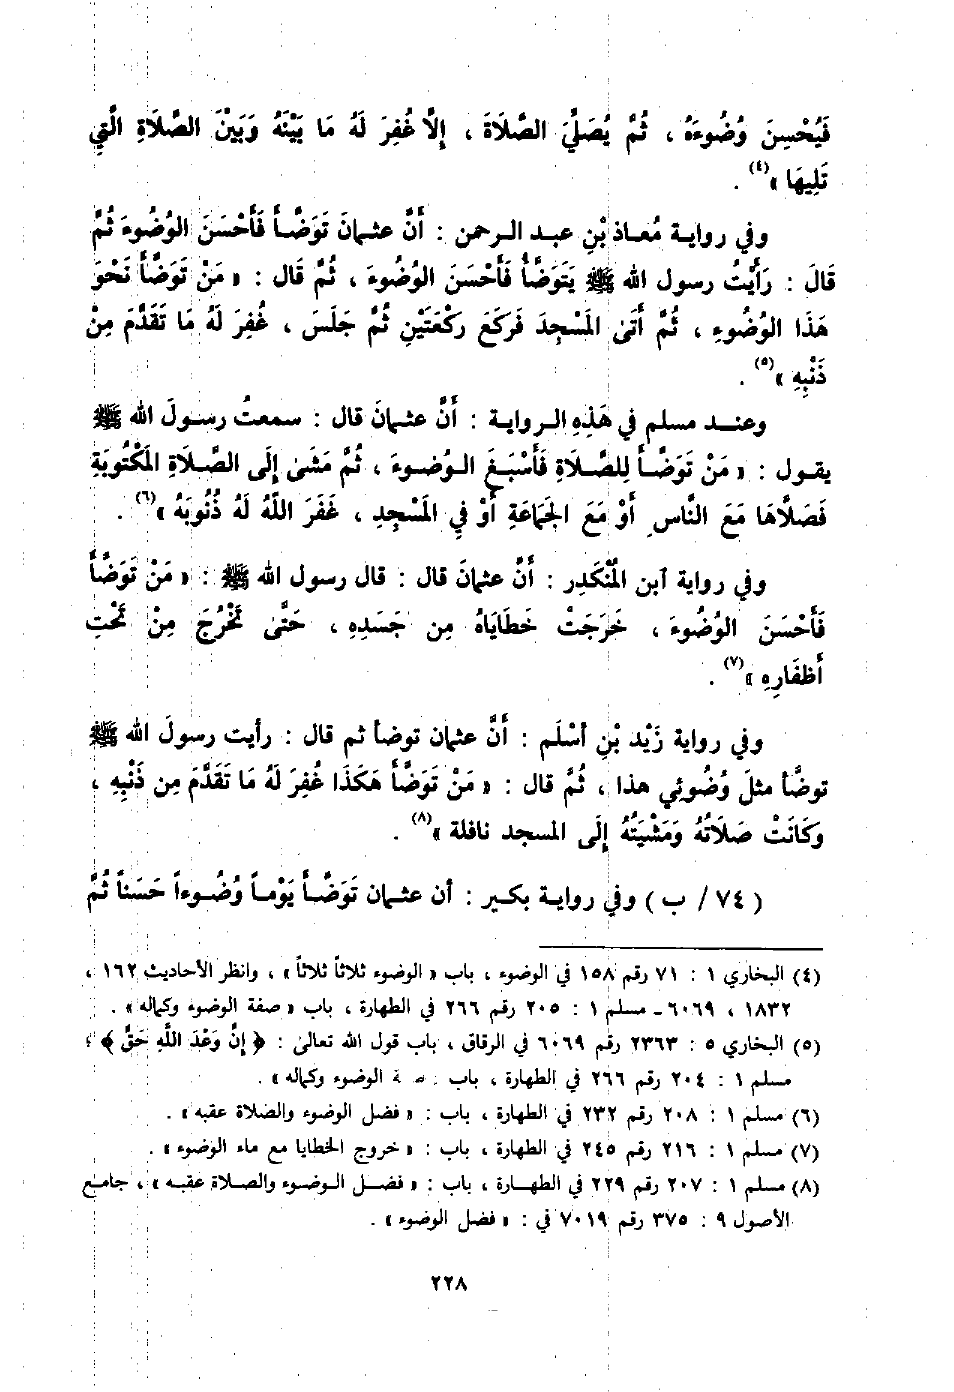 فَيُحْسِنَ وُضُوءَهُ ، ثُمَّ يُصَلِّيَ الصَّلَاةَ ، إِلَّا غُفِرَ لَهُ مَا بَيْنَهُ وَبَيْنَ الصَّلَاةِ الَّتِي
تَلِيهَا »(٤) .
وفي رواية مُعَاذ بْنِ عبد الرحمن : أَنَّ عثمانَ تَوَضَّأَ فَأَحْسَنَ الوُضُوءَ ثُمَّ
قَالَ : رَأَيْتُ رسول الله ﷺ يَتَوَضَّأُ فَأَحْسَنَ الوُضُوءَ ، ثُمَّ قَال : « مَنْ تَوَضَّأَ نَحْوَ
هَذَا الوُضُوءِ ، ثُمَّ أَتَىٰ المَسْجِدَ فَرَكَعَ رَكْعَتَيْنِ ثُمَّ جَلَسَ ، غُفِرَ لَهُ مَا تَقَدَّمَ مِنْ
ذَنْبِهِ »(٥) .
وعند مسلم في هَذِهِ الرواية : أَنَّ عثمانَ قال : سمعتُ رسولَ الله ﷺ
يقول : « مَنْ تَوَضَّأَ لِلصَّلَاةِ فَأَسْبَغَ الوُضوءَ ، ثُمَّ مَشَىٰ إِلَى الصَّلَاةِ المَكْتُوبَةِ
فَصَلَّاهَا مَعَ النَّاسِ أَوْ مَعَ الجَمَاعَةِ أَوْ فِي المَسْجِدِ ، غَفَرَ اللَّهُ لَهُ ذُنُوبَهُ »(٦) .
وفي رواية آبن المُنْكَدِر : أَنَّ عثمانَ قال : قال رسول الله ﷺ : « مَنْ تَوَضَّأَ
فَأَحْسَنَ الوُضُوءَ ، خَرَجَتْ خَطَايَاهُ مِن جَسَدِهِ ، حَتَّىٰ تَخْرُجَ مِنْ تَحْتِ
أَظفَارِهِ »(٧) .
وفي رواية زَيْد بْنِ أسْلَم : أَنَّ عثمان توضأ ثم قال : رأيت رسولَ الله ﷺ
توضَّأ مثلَ وُضُوئِي هذا ، ثُمَّ قال : « مَنْ تَوَضَّأَ هَكَذَا غُفِرَ لَهُ مَا تَقَدَّمَ مِن ذَنْبِهِ ،
وَكَانَتْ صَلَاتُهُ وَمَشْيَتُهُ إِلَى المسجد نافلة »(٨) .
( ٧٤ / ب ) وفي رواية بكير : أن عثمان تَوَضَّأَ يَوْماً وُضُوءاً حَسَناً ثُمَّ
(٤) البخاري ١ : ٧١ رقم ١٥٨ في الوضوء ، باب « الوضوء ثلاثاً ثلاثاً » ، وانظر الأحاديث ١٦٢ ،
١٨٣٢ ، ٦٠٦٩ ـ مسلم ١ : ٢٠٥ رقم ٢٦٦ في الطهارة ، باب « صفة الوضوء وكماله » .
(٥) البخاري ٥ : ٢٣٦٣ رقم ٦٠٦٩ في الرقاق ، باب قول الله تعالى : ﴿ إِنَّ وَعْدَ اللَّهِ حَقٌّ ﴾ ؛
مسلم ١ : ٢٠٤ رقم ٢٦٦ في الطهارة ، باب الوضوء وكماله » .
(٦) مسلم ١ : ٢٠٨ رقم ٢٣٢ في الطهارة ، باب : « فضل الوضوء والصلاة عقبه » .
(٧) مسلم ١ : ٢١٦ رقم ٢٤٥ في الطهارة ، باب : « خروج الخطايا مع ماء الوضوء » .
(٨) مسلم ١ : ٢٠٧ رقم ٢٢٩ في الطهارة ، باب : « فضل الوضوء والصلاة عقبه » ، جامع
الأصول ٩ : ٣٧٥ رقم ٧٠١٩ في : « فضل الوضوء » .
٢٢٨